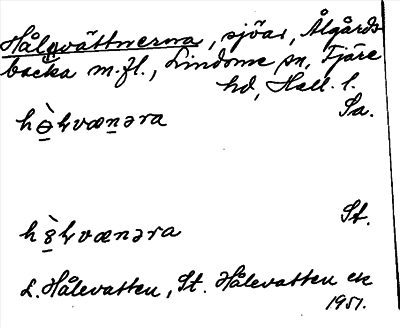 Hålevättnerna, sjöar, Ålgårds-
backa m.fl., Lindome sn, Fjäre
hd, Hall. l.
Sa.
St.
L. Hålevatten, St. Hålevatten ek
1951.